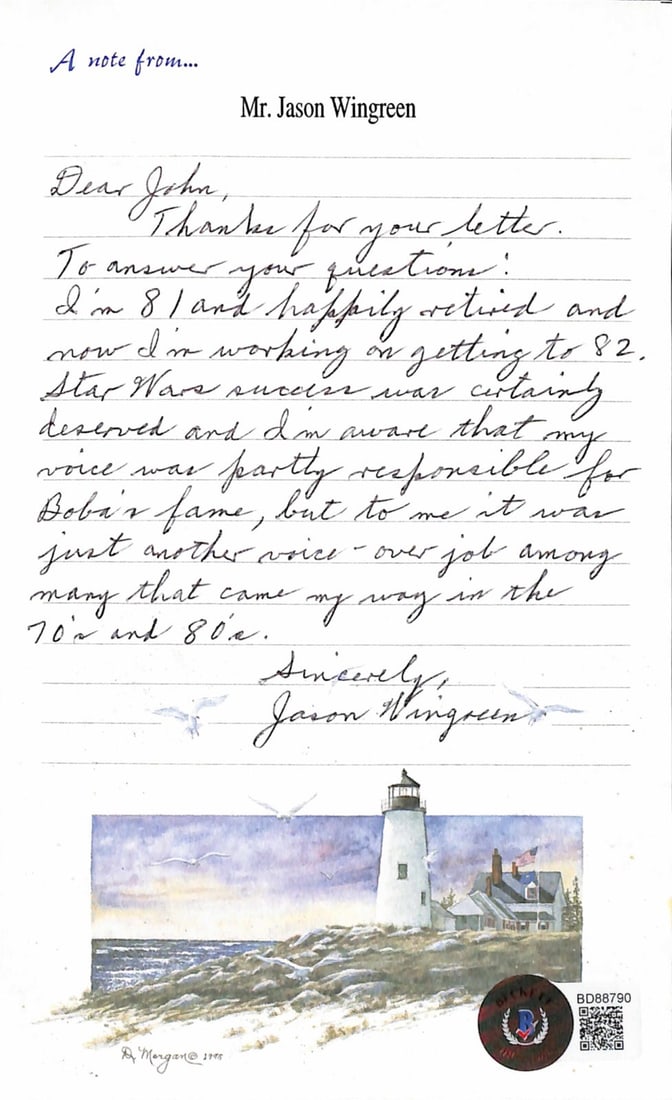 A note from...
Mr. Jason Wingreen
Dear John,
Thanks for your letter.
To answer your questions:
I'm 81 and happily retired and
now I'm working on getting to 82.
Star Wars success was certainly
deserved and I'm aware that my
voice was partly responsible for
Boba's fame, but to me it was
just another voice-over job among
many that came my way in the
70's and 80's.
Sincerely,
Jason Wingreen
D. Morgan©
BECKETT
B
BD88790